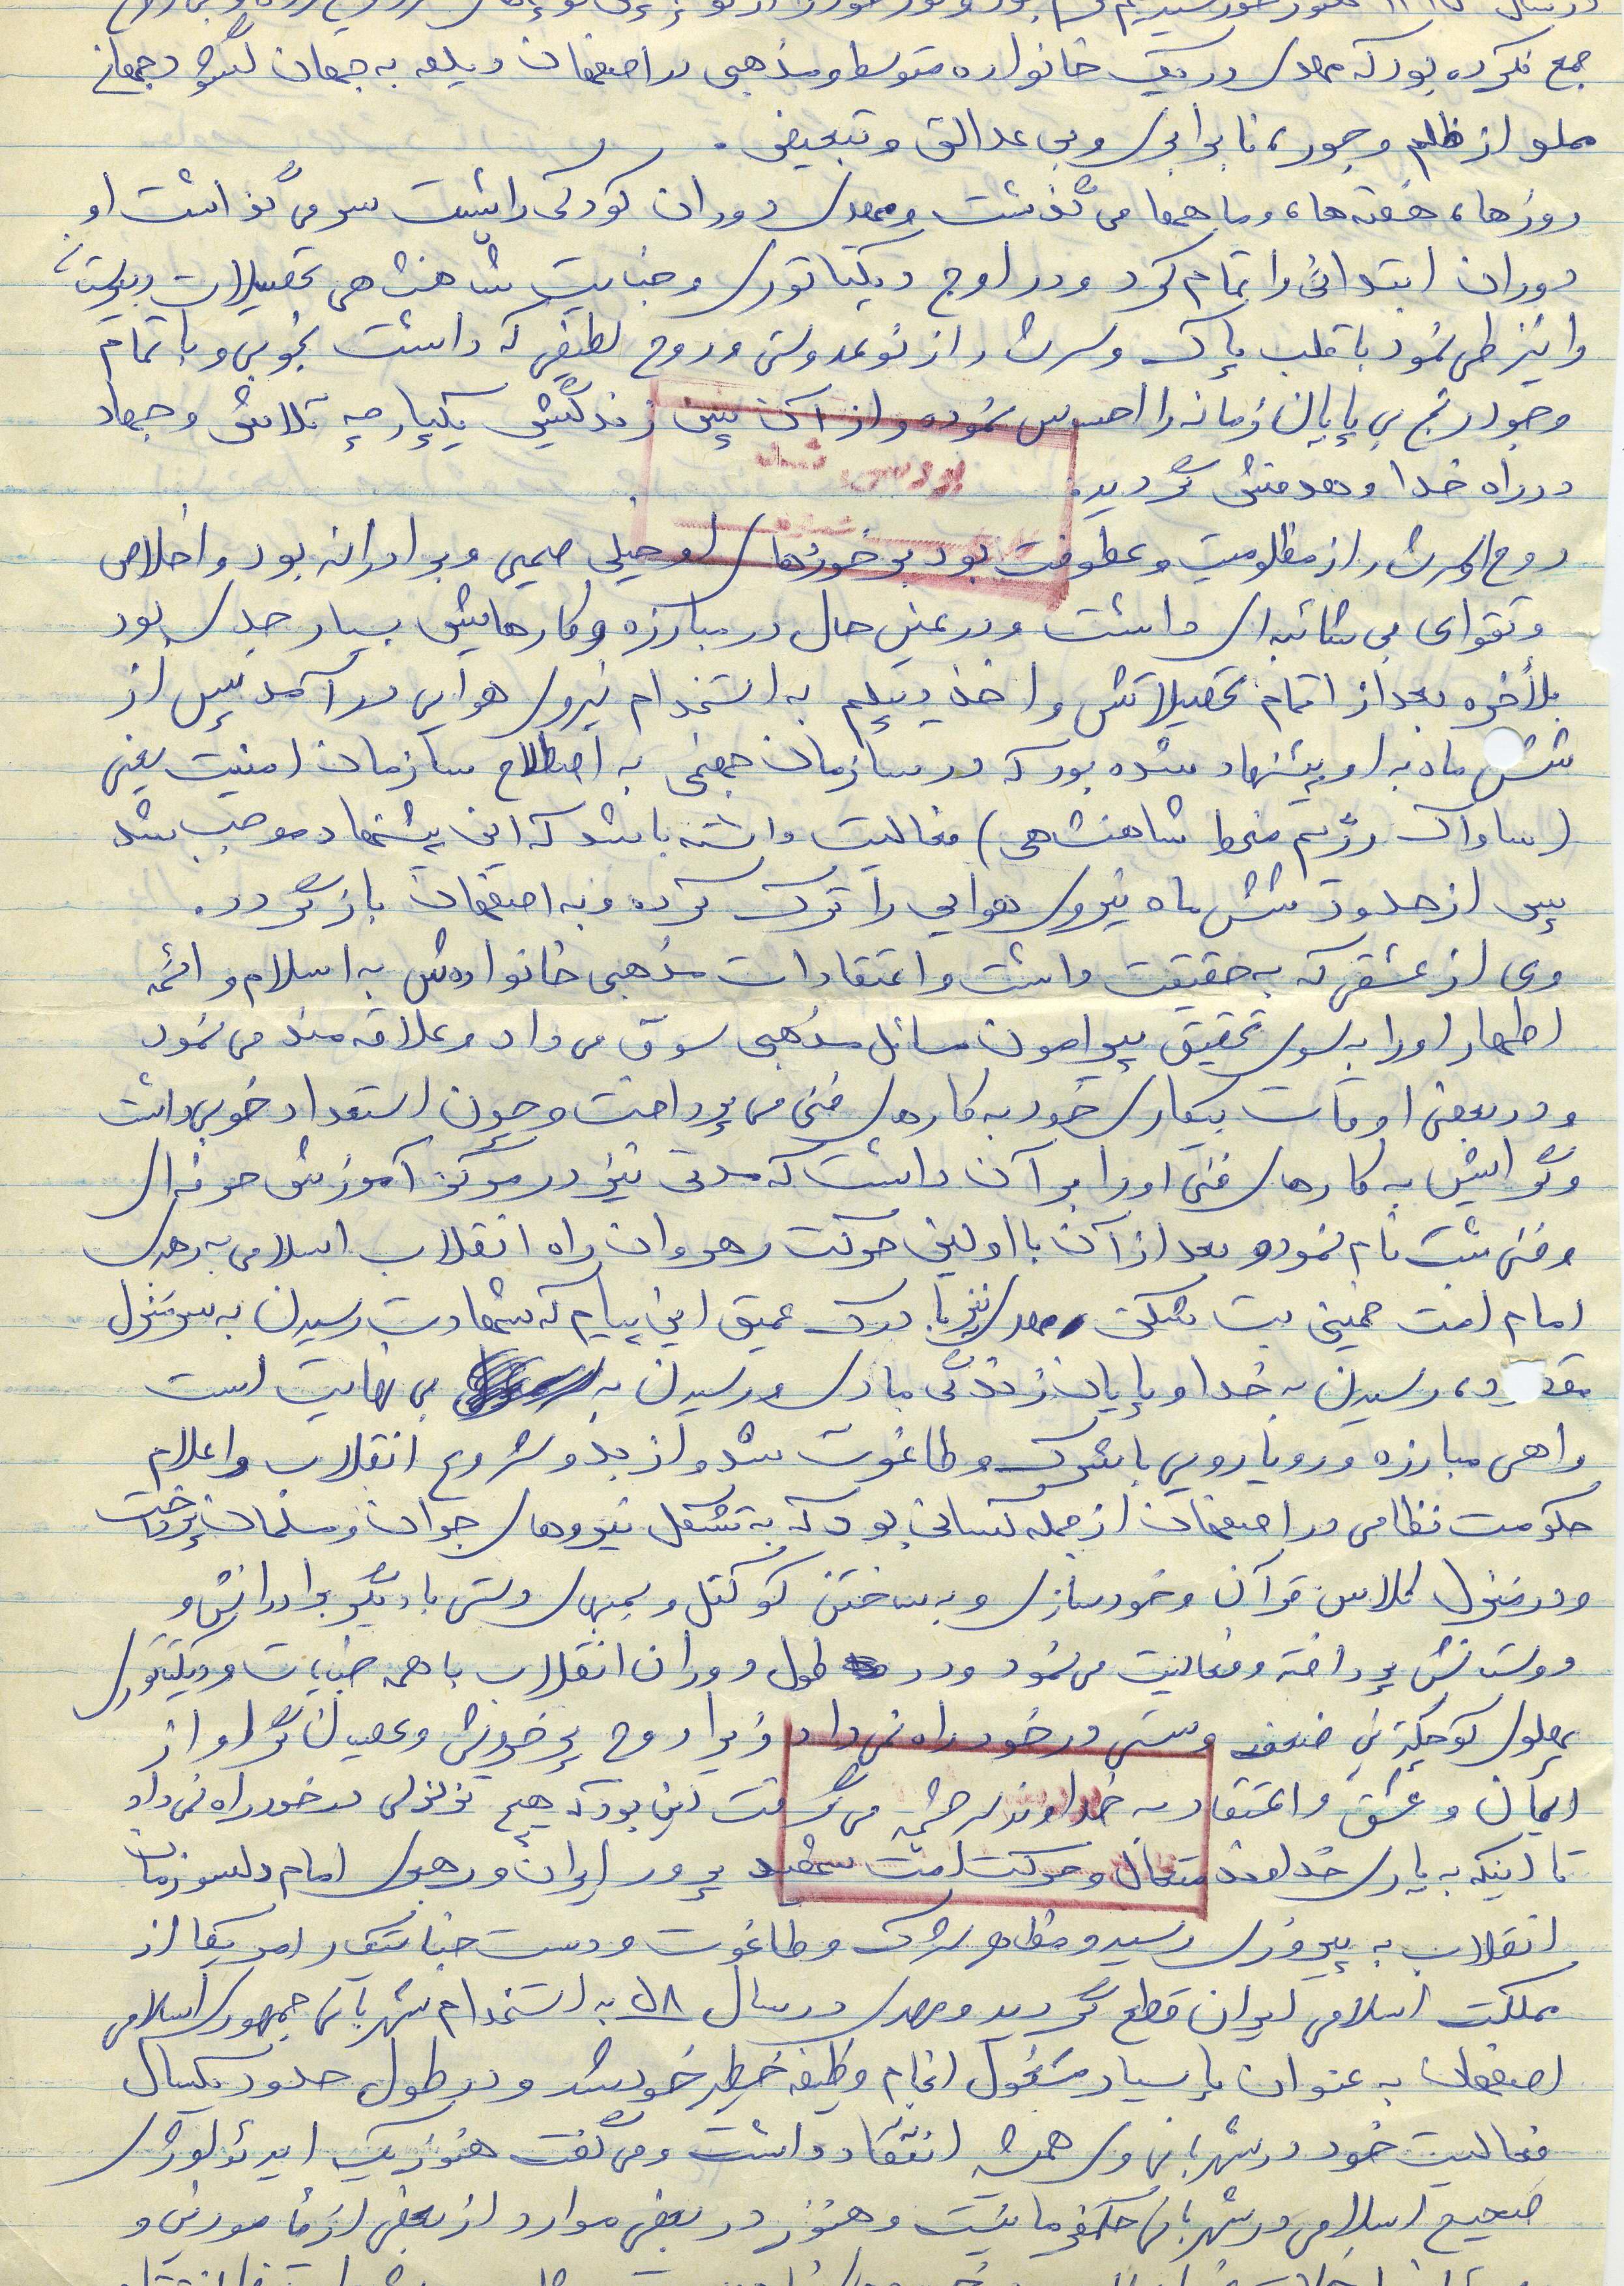 جمع نکرده بود که مهدی در یک خانواده متوسط و مذهبی در اصفهان دیده به جهان گشود جهانی
مملو از ظلم و جور، نابرابری و بی عدالتی و تبعیض.
روزها، هفته ها، و ماهها می گذشت و مهدی دوران کودکی را پشت سر می گذاشت او
دوران ابتدائی را تمام کرد و در اوج دیکتاتوری و جنایت شاهنشاهی تحصیلات دبیرستانی
را نیز طی نمود با قلب پاک و سرشار از نوعدوستی و روح لطیفی که داشت بخوبی و با تمام
وجود رنج بی پایان زمانه را احساس نموده و از آن پس زندگیش یکپارچه تلاش و جهاد
در راه خدا و هدفش گردید.
بررسی شد
روح او سرشار از مظلومیت و عطوفت بود برخوردهای او خیلی صمیمی و برادرانه بود و اخلاص
و تقوای بی شائبه ای داشت و در عین حال در مبارزه و کارهایش بسیار جدی بود
بلأخره بعد از اتمام تحصیلاتش و اخذ دیپلم به استخدام نیروی هوایی در آمد پس از
شش ماه به او پیشنهاد شده بود که در سازمان جهنمی به اصطلاح سازمان امنیت یعنی
(ساواک رژیم منحط شاهنشاهی) فعالیت داشته باشد که این پیشنهاد موجب شد
پس از حدود شش ماه نیروی هوایی را ترک کرده و به اصفهان باز گردد.
وی از عشقی که به حقیقت داشت و اعتقادات مذهبی خانواده اش به اسلام و ائمه
اطهار او را به سوی تحقیق پیرامون مسائل مذهبی سوق می داد و علاقه مند می نمود
و در بعضی اوقات بیکاری خود به کارهای فنی می پرداخت و چون استعداد خوبی داشت
و گرایش به کارهای فنی او را بر آن داشت که مدتی نیز در مرکز آموزش حرفه ای
و فنی ثبت نام نمود و بعد از آن با اولین حرکت رهروان راه انقلاب اسلامی به رهبری
امام امت خمینی بت شکن، مهدی نیز با درک عمیق این پیام که شهادت رسیدن به سرمنزل
مقصود، رسیدن به خدا و پایان زندگی مادی و رسیدن به بی نهایت است
راهی مبارزه و رویارویی با شرک و طاغوت شد و از بدو شروع انقلاب و اعلام
حکومت نظامی در اصفهان از جمله کسانی بود که به تشکل نیروهای جوان و مسلمان پرداخت
و در منزل کلاس قرآن و خودسازی و به ساختن کوکتل و بمبهای دستی با دیگر برادرانش و
دوستانش پرداخته و فعالیت می نمود و در طول دوران انقلاب با همه جنایات و دیکتاتوری
پهلوی کوچکترین ضعف و سستی در خود راه نمی داد زیرا روح پرخروش و عصیان گر او از
ایمان و عشق و اعتقاد به خداوند سرچشمه می گرفت این بود که هیچ تزلزلی در خود راه نمی داد
تا اینکه به یاری خداوند متعال و حرکت امت شهید پرور ایران و رهبری امام دلسوزمان
انقلاب به پیروزی رسید و مظاهر شرک و طاغوت و دست جنایتکار امریکا از
مملکت اسلامی ایران قطع گردید و مهدی در سال ۵۸ به استخدام شهربانی جمهوری اسلامی
اصفهان به عنوان پاسیار مشغول انجام وظیفه خطیر خود شد و در طول حدود یکسال
فعالیت خود در شهربانی وی همیشه انتقاد داشت و می گفت هنوز یک ایدئولوژی
صحیح اسلامی در شهربانی حکمفرما نیست و هنوز در بعضی موارد از بعضی از مأمورین و